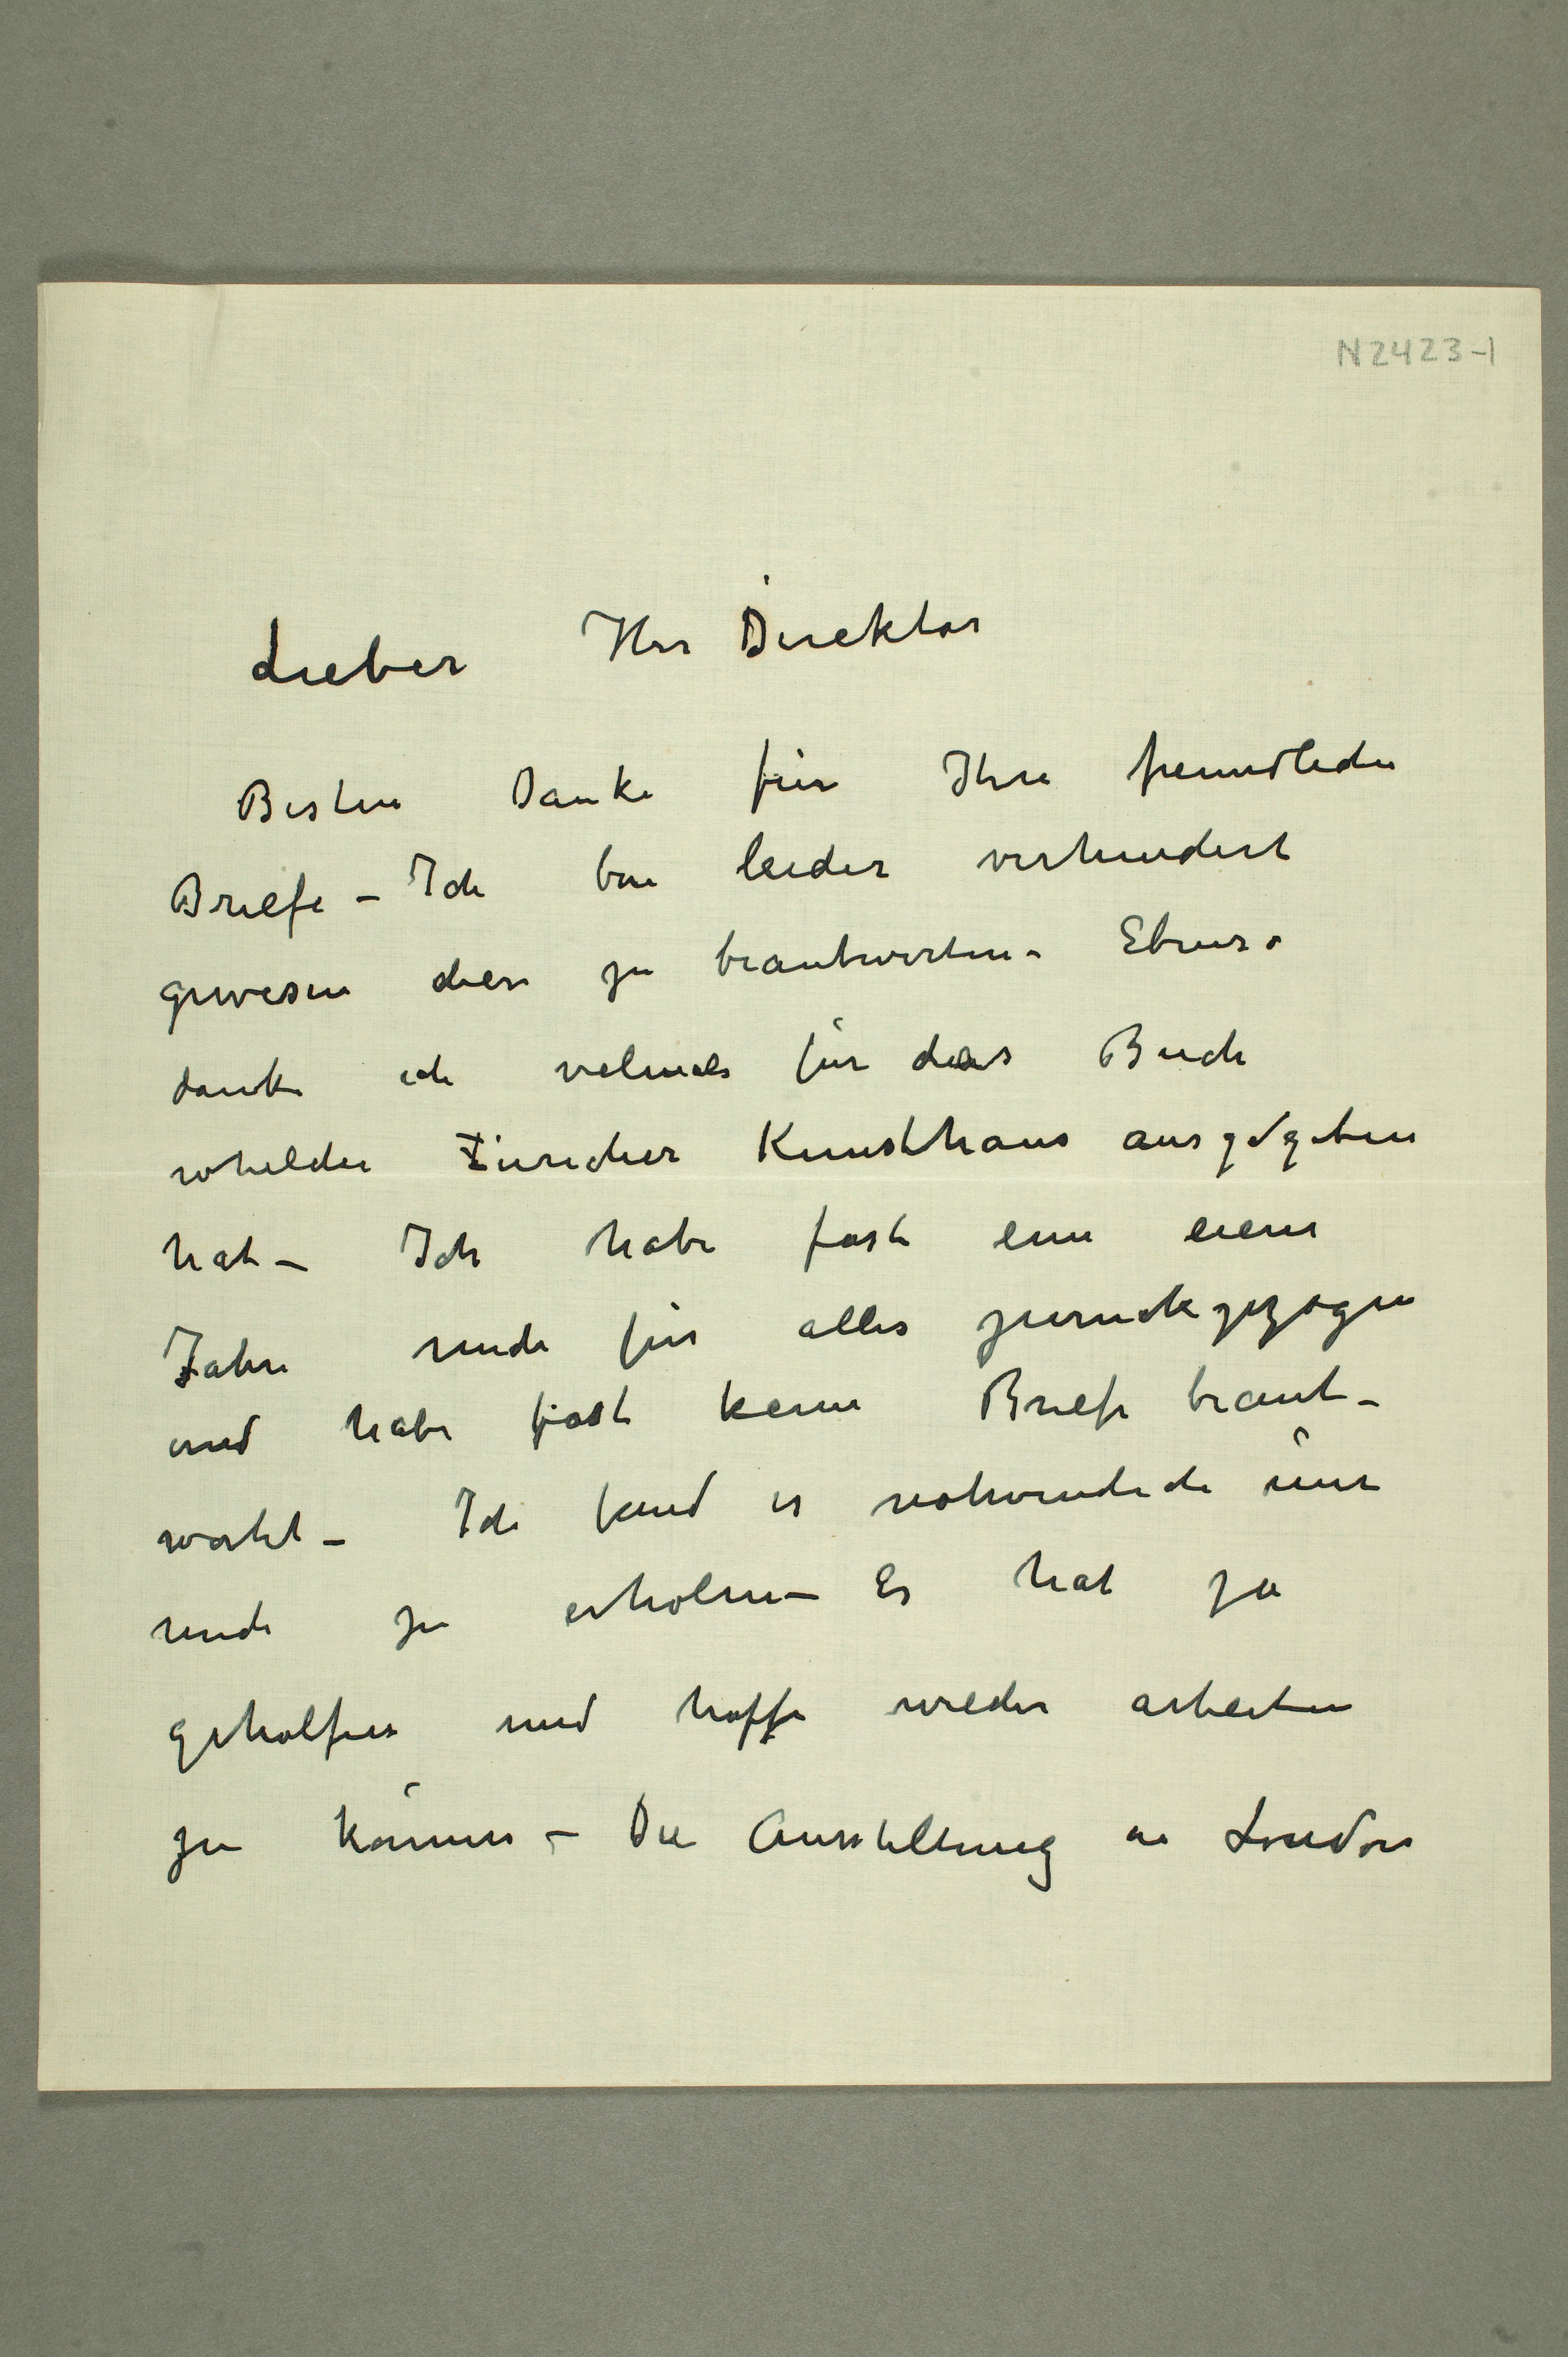 N2423-1
Lieber Herr Direktor
Besten Danke für Ihre freundliche
Briefe – Ich bin leider verhindert
gewesen diese zu beantworten – Ebenso
danke ich velmals für das Buch
whelche Züricher Kunsthaus ausgegeben
hat – Ich habe fast ein
Jahre mich für alles zurückgezogen
und habe fast keine Briefe beant-
wortet – Ich fand es nothwendich
mich zu erholen – Es hat ja
geholfen und hoffe wieder arbeiten
zu können – Die Ausstellung in London